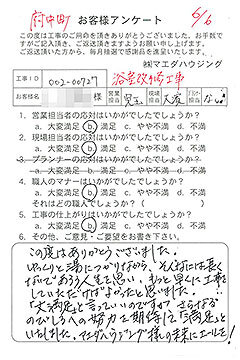 府中町 お客様アンケート 5/6
この度は工事のご用命を頂きありがとうございました。お手数で
すがご記入頂き、ご返送頂きますようお願い申し上げます。
ご返送頂いた方から、毎月抽選で感謝品を進呈いたします。
㈱マエダハウジング
工事ID 002-00727 浴室改修工事
お客様名 様 営業担当 現場担当
1. 営業担当者の応対はいかがでしたでしょうか?
a. 大変満足 b. 満足 c. やや不満 d. 不満
2. 現場担当者の応対はいかがでしたでしょうか?
a. 大変満足 b. 満足 c. やや不満 d. 不満
3. プランナーの応対はいかがでしたでしょうか?
a. 大変満足 b. 満足 c. やや不満 d. 不満
4. 職人のマナーはいかがでしたでしょうか?
a. 大変満足 b. 満足 c. やや不満 d. 不満
それはどの職人でしょうか?( )
5. 工事の仕上がりはいかがでしたでしょうか?
a. 大変満足 b. 満足 c. やや不満 d. 不満
6. その他、ご意見・ご要望をお書き下さい。
この度はありがとうございました。
ゆっくりと湯につかりながら、そんなには長く
ないであろう人生を思い、もっと早くに工事を
していただけばよかったと思いました。
大満足と言っていいのですが さらなる
のびしろへの努力を期待して「満足」と
いたしました。マエダハウジング様の未来にエールを!